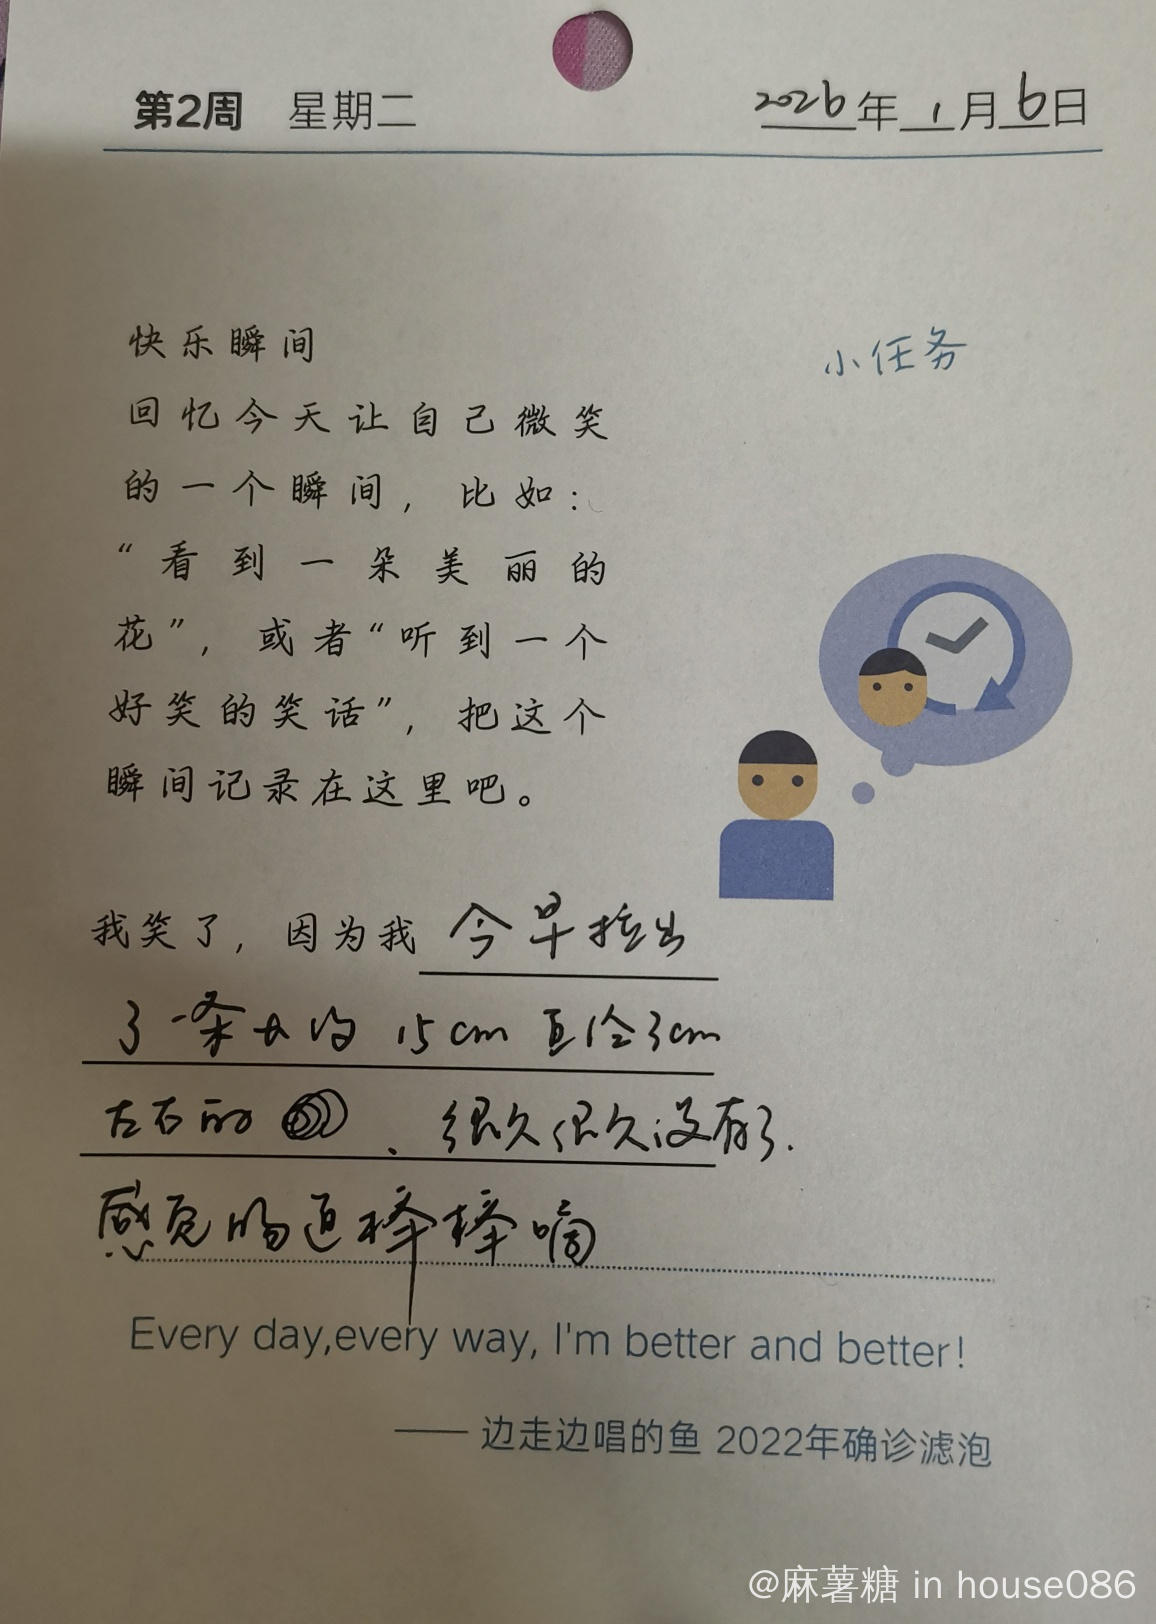 第2周 星期二 2026年1月6日
快乐瞬间
小任务
回忆今天让自己微笑
的一个瞬间，比如：
“看到一朵美丽的
花”，或者“听到一个
好笑的笑话”，把这个
瞬间记录在这里吧。
我笑了，因为我今早拉出
了一条大约15cm 直径3cm
左右的 、很久很久没有了.
感觉肠道棒棒嘀
Every day,every way, I'm better and better!
—— 边走边唱的鱼 2022年确诊滤泡
@麻薯糖 in house086